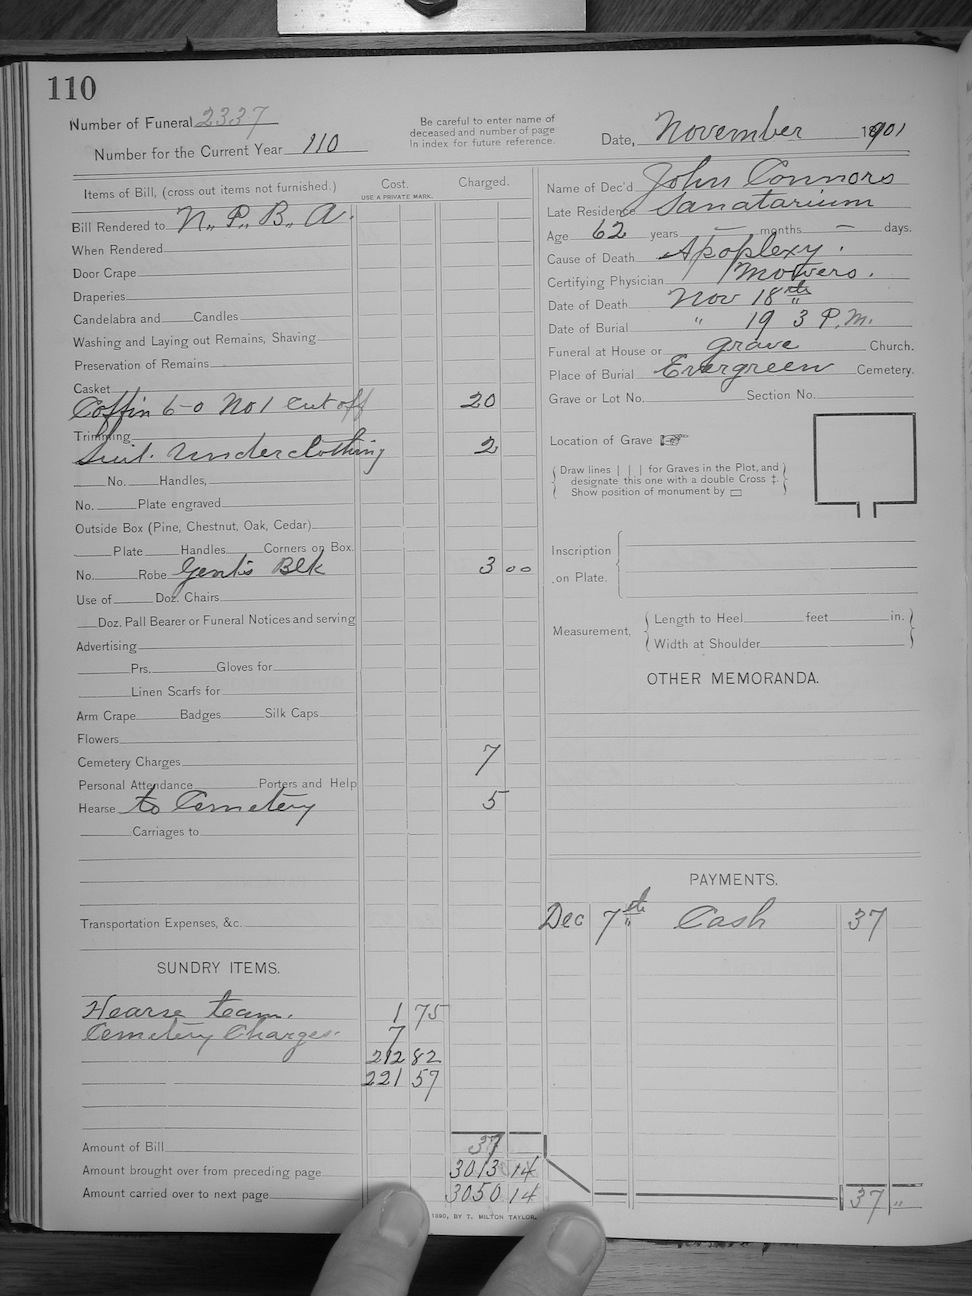 110
Number of Funeral 2337
Number for the Current Year 110
Be careful to enter name of
deceased and number of page
in index for future reference.
Date, November 1901
Items of Bill, (cross out items not furnished.)
Cost.
USE A PRIVATE MARK.
Charged.
Bill Rendered to N. P. B. A.
When Rendered
Door Crape
Draperies
Candelabra and Candles
Washing and Laying out Remains, Shaving
Preservation of Remains
Casket
Coffin 6-0 No 1 Cut off 20
Trimming
Suit. Underclothing 2
No. Handles,
No. Plate engraved
Outside Box (Pine, Chestnut, Oak, Cedar)
Plate Handles Corners on Box.
No. Robe Gents Blk 3 00
Use of Doz. Chairs
Doz. Pall Bearer or Funeral Notices and serving
Advertising
Prs. Gloves for
Linen Scarfs for
Arm Crape Badges Silk Caps
Flowers
Cemetery Charges 7
Personal Attendance Porters and Help
Hearse to Cemetery 5
Carriages to
Transportation Expenses, &c.
SUNDRY ITEMS.
Hearse team. 1 75
Cemetery Charges. 7
212 82
221 57
Amount of Bill 37
Amount brought over from preceding page 3013 14
Amount carried over to next page 3050 14
1890, BY T. MILTON TAYLOR.
Name of Dec'd John Connors
Late Residence Sanatarium
Age 62 years — months — days.
Cause of Death Apoplexy.
Certifying Physician Mowers.
Date of Death Nov 18th
Date of Burial " 19 3 P.M.
Funeral at House or grave Church.
Place of Burial Evergreen Cemetery.
Grave or Lot No. Section No.
Location of Grave ☞
Draw lines | | | for Graves in the Plot, and
designate this one with a double Cross ‡.
Show position of monument by ▭
Inscription
on Plate.
Measurement,
Length to Heel feet in.
Width at Shoulder
OTHER MEMORANDA.
PAYMENTS.
Dec 7th Cash 37
37 "